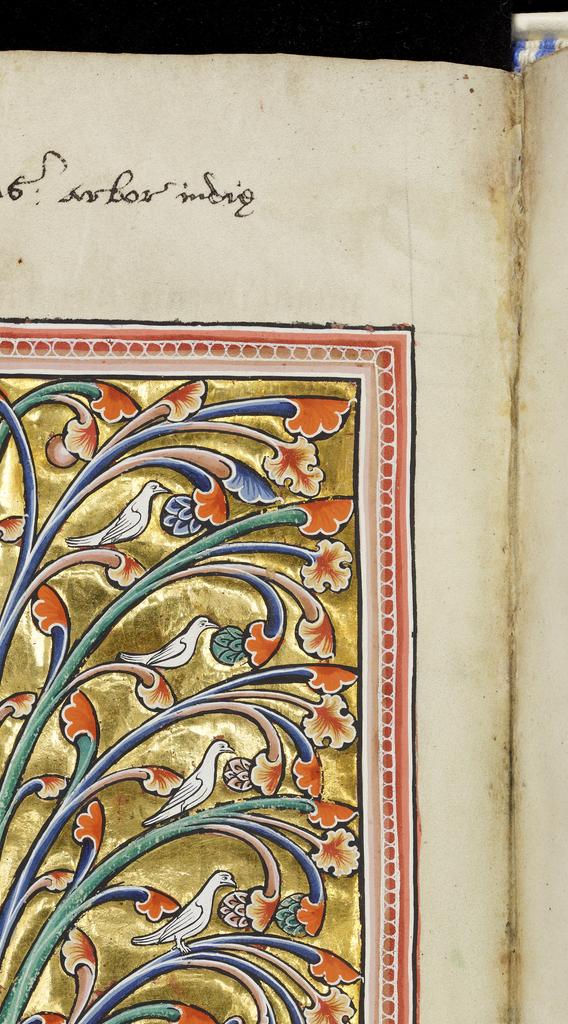 arbor indię